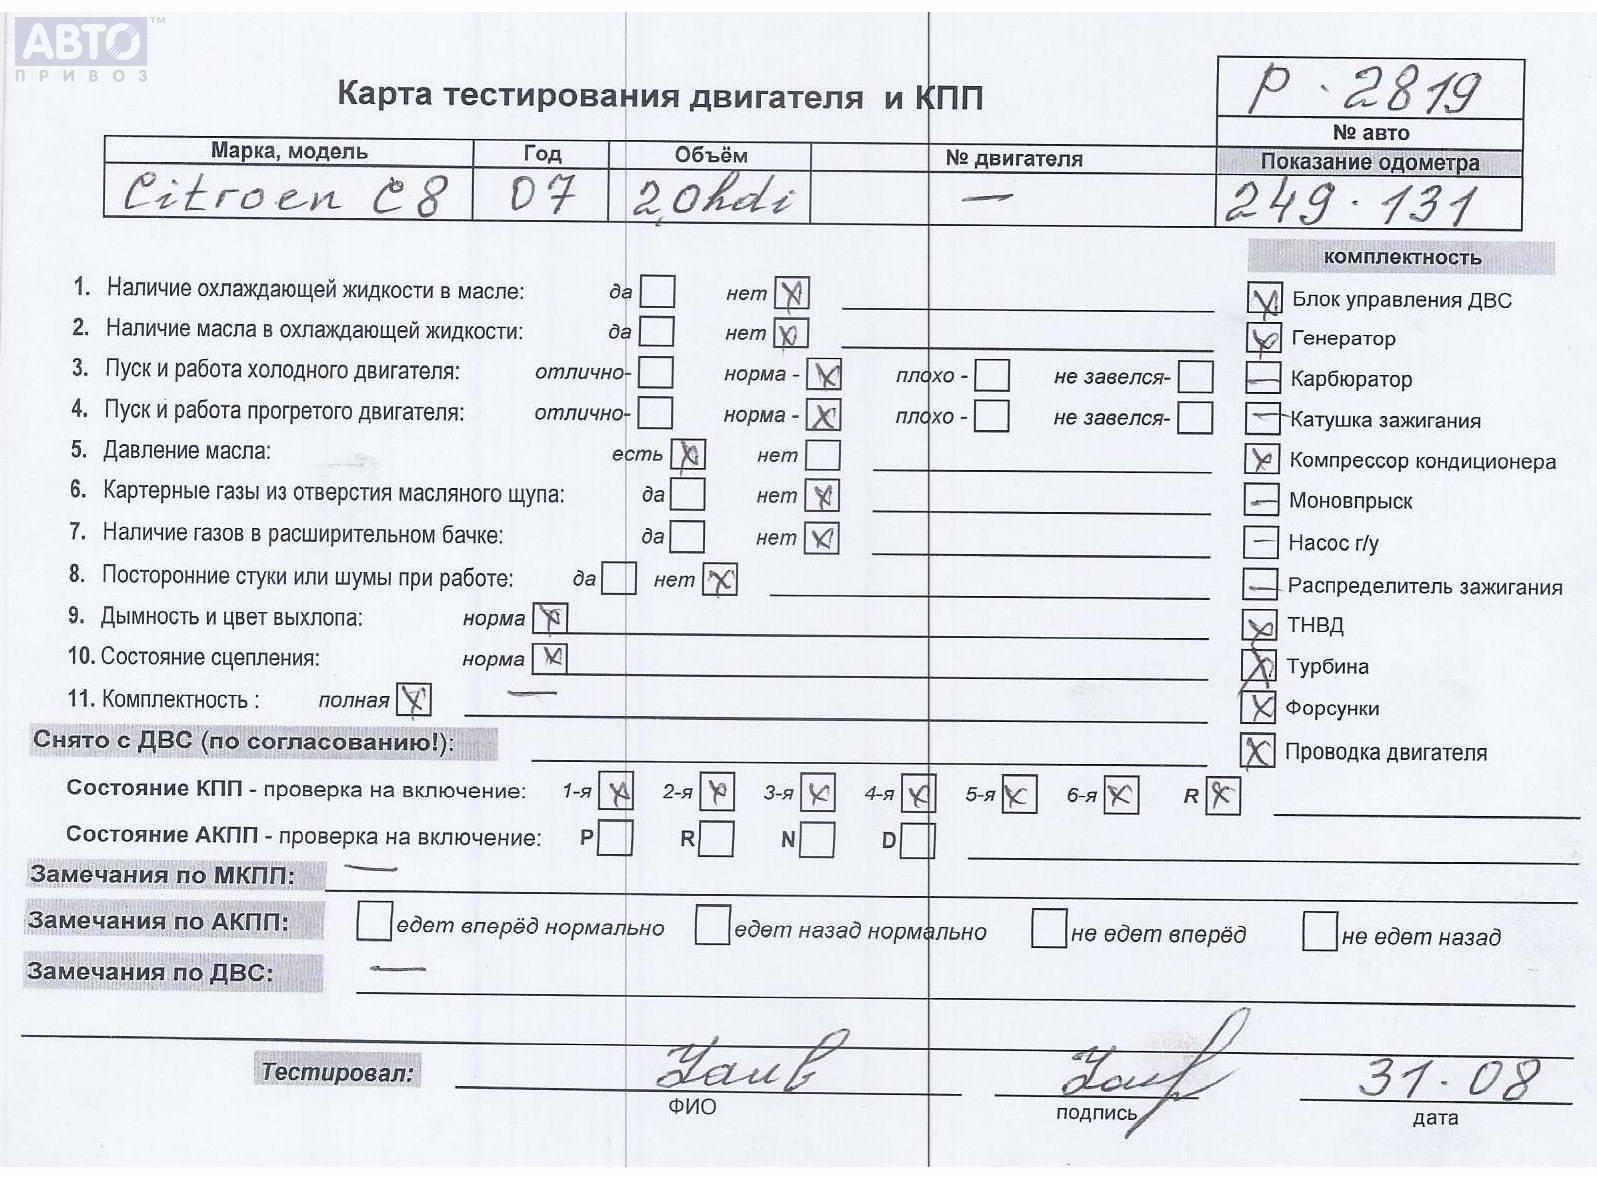 АВТО™
ПРИВОЗ
Карта тестирования двигателя и КПП
P · 2819
№ авто
Марка, модель Год Объём № двигателя Показание одометра
Citroen C8 07 2,0hdi — 249 · 131
комплектность
1. Наличие охлаждающей жидкости в масле: да нет X
X Блок управления ДВС
2. Наличие масла в охлаждающей жидкости: да нет X
X Генератор
3. Пуск и работа холодного двигателя: отлично- норма - X плохо - не завелся-
— Карбюратор
4. Пуск и работа прогретого двигателя: отлично- норма - X плохо - не завелся-
— Катушка зажигания
5. Давление масла: есть X нет
X Компрессор кондиционера
6. Картерные газы из отверстия масляного щупа: да нет X
— Моновпрыск
7. Наличие газов в расширительном бачке: да нет X
— Насос г/у
8. Посторонние стуки или шумы при работе: да нет X
— Распределитель зажигания
9. Дымность и цвет выхлопа: норма X
X ТНВД
10. Состояние сцепления: норма X
X Турбина
11. Комплектность : полная X —
X Форсунки
Снято с ДВС (по согласованию!):
X Проводка двигателя
Состояние КПП - проверка на включение: 1-я X 2-я X 3-я X 4-я X 5-я X 6-я X R X
Состояние АКПП - проверка на включение: P R N D
Замечания по МКПП: —
Замечания по АКПП: едет вперёд нормально едет назад нормально не едет вперёд не едет назад
Замечания по ДВС: —
Тестировал: 31 · 08
ФИО подпись дата